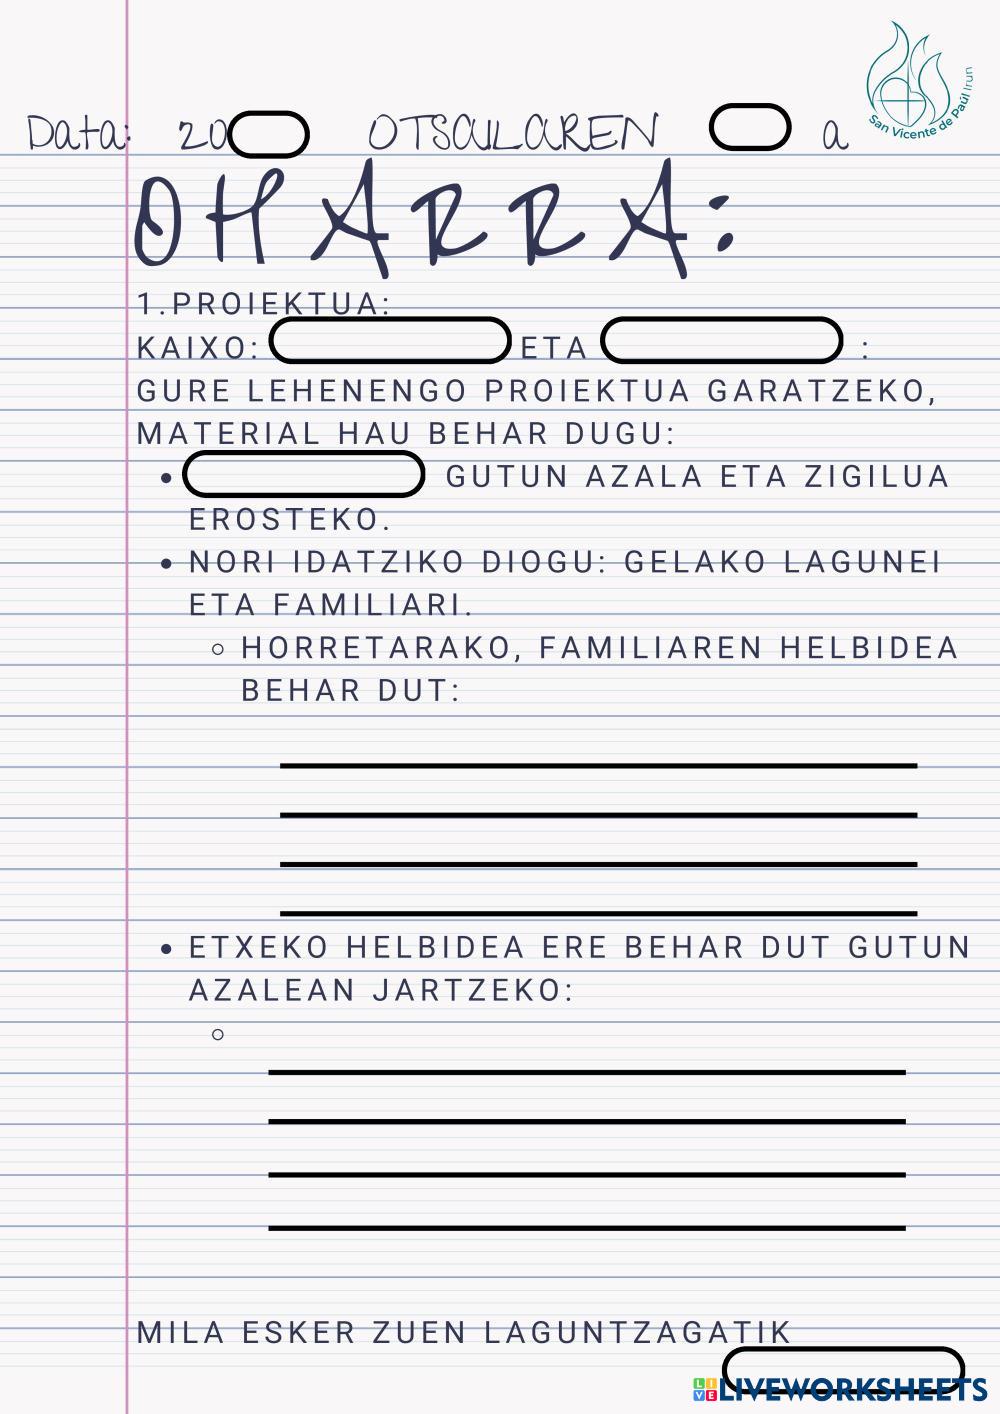 San Vicente de Paúl Irun
Data: 20 OTSAILAREN a
OHARRA:
1.PROIEKTUA:
KAIXO: ETA :
GURE LEHENENGO PROIEKTUA GARATZEKO,
MATERIAL HAU BEHAR DUGU:
• GUTUN AZALA ETA ZIGILUA
EROSTEKO.
• NORI IDATZIKO DIOGU: GELAKO LAGUNEI
ETA FAMILIARI.
◦ HORRETARAKO, FAMILIAREN HELBIDEA
BEHAR DUT:
• ETXEKO HELBIDEA ERE BEHAR DUT GUTUN
AZALEAN JARTZEKO:
◦
MILA ESKER ZUEN LAGUNTZAGATIK
LIVE LIVEWORKSHEETS